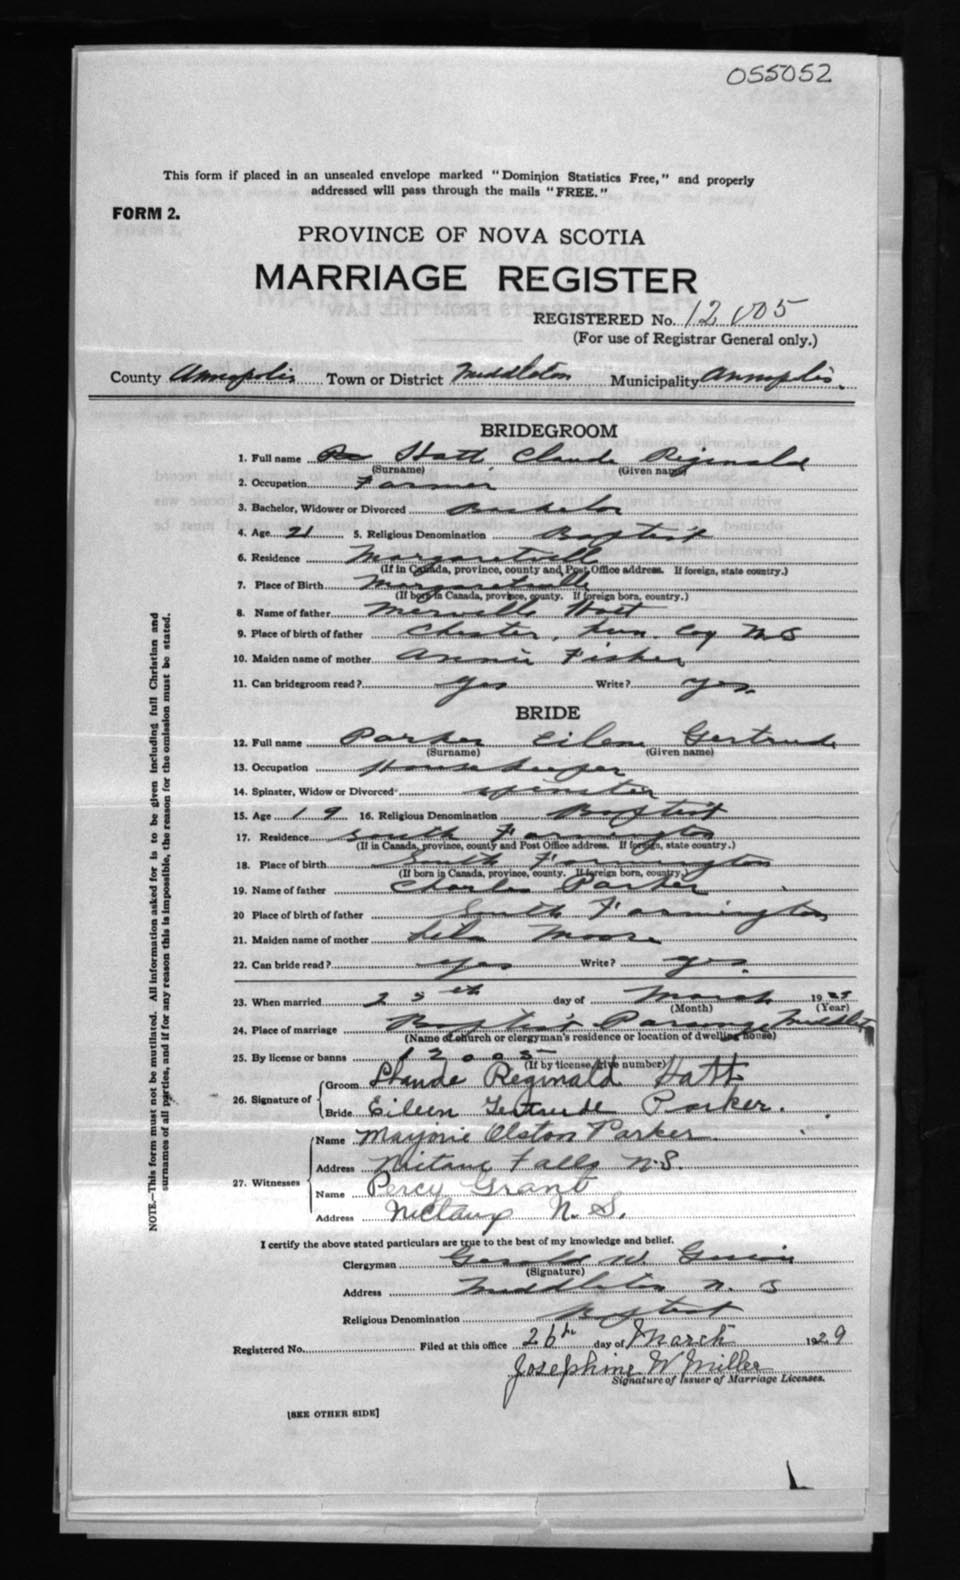 055052
This form if placed in an unsealed envelope marked "Dominion Statistics Free," and properly
addressed will pass through the mails "FREE."
FORM 2.
PROVINCE OF NOVA SCOTIA
MARRIAGE REGISTER
REGISTERED No. 12005
(For use of Registrar General only.)
County Annapolis Town or District Middleton Municipality Annapolis.
BRIDEGROOM
1. Full name Hatt Claude Reginald
(Surname) (Given name)
2. Occupation Farmer
3. Bachelor, Widower or Divorced Bachelor
4. Age 21 5. Religious Denomination Baptist
6. Residence Margaretvill
(If in Canada, province, county and Post Office address. If foreign, state country.)
7. Place of Birth Margaretville
(If born in Canada, province, county. If foreign born, country.)
8. Name of father Hatt
9. Place of birth of father Chester, Lun. Coy N S
10. Maiden name of mother Annie Fisher
11. Can bridegroom read? yes Write? yes.
BRIDE
12. Full name Parker Eilene Gertrude
(Surname) (Given name)
13. Occupation Housekeeper
14. Spinster, Widow or Divorced spinster
15. Age 19 16. Religious Denomination Baptist
17. Residence South Farmington
(If in Canada, province, county and Post Office address. If foreign, state country.)
18. Place of birth South Farmington
(If born in Canada, province, county. If foreign born, country.)
19. Name of father Charles Parker
20 Place of birth of father South Farmington
21. Maiden name of mother Moore
22. Can bride read? yes Write? yes.
23. When married 25th day of March 1929
(Month) (Year)
24. Place of marriage Baptist Parsonage Middleton
(Name of church or clergyman's residence or location of dwelling house)
25. By license or banns 12005
(If by license, give number)
26. Signature of Groom Claude Reginald Hatt
Bride Eileen Gertrude Parker.
27. Witnesses Name Marjorie Olston Parker
Address Nictaux Falls N.S.
Name Percy Grant
Address Nictaux N. S.
I certify the above stated particulars are true to the best of my knowledge and belief.
Clergyman Gerald W.
(Signature)
Address Middleton N. S
Religious Denomination Baptist
Registered No. Filed at this office 26th day of March 1929
Josephine W Miller
Signature of Issuer of Marriage Licenses.
[SEE OTHER SIDE]
NOTE.—This form must not be mutilated. All information asked for is to be given including full Christian and
surnames of all parties, and if for any reason this is impossible, the reason for the omission must be stated.